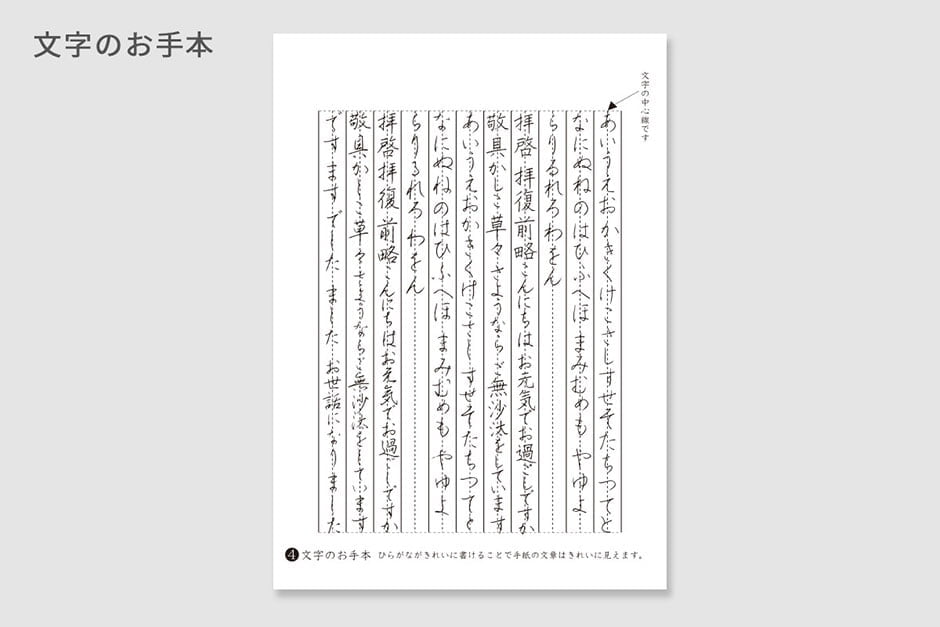 文字のお手本
文字の中心線です
あいうえおかきくけこさしすせそたちつてと
なにぬねのはひふへほまみむめもやゆよ
らりるれろわをん
拝啓拝復前略こんにちはお元気でお過ごしですか
敬具かしこ草々さようならご無沙汰をしています
あいうえおかきくけこさしすせそたちつてと
なにぬねのはひふへほまみむめもやゆよ
らりるれろわをん
拝啓拝復前略こんにちはお元気でお過ごしですか
敬具かしこ草々さようならご無沙汰をしています
ですますでしたましたお世話になりました
❹文字のお手本 ひらがながきれいに書けることで手紙の文章はきれいに見えます。